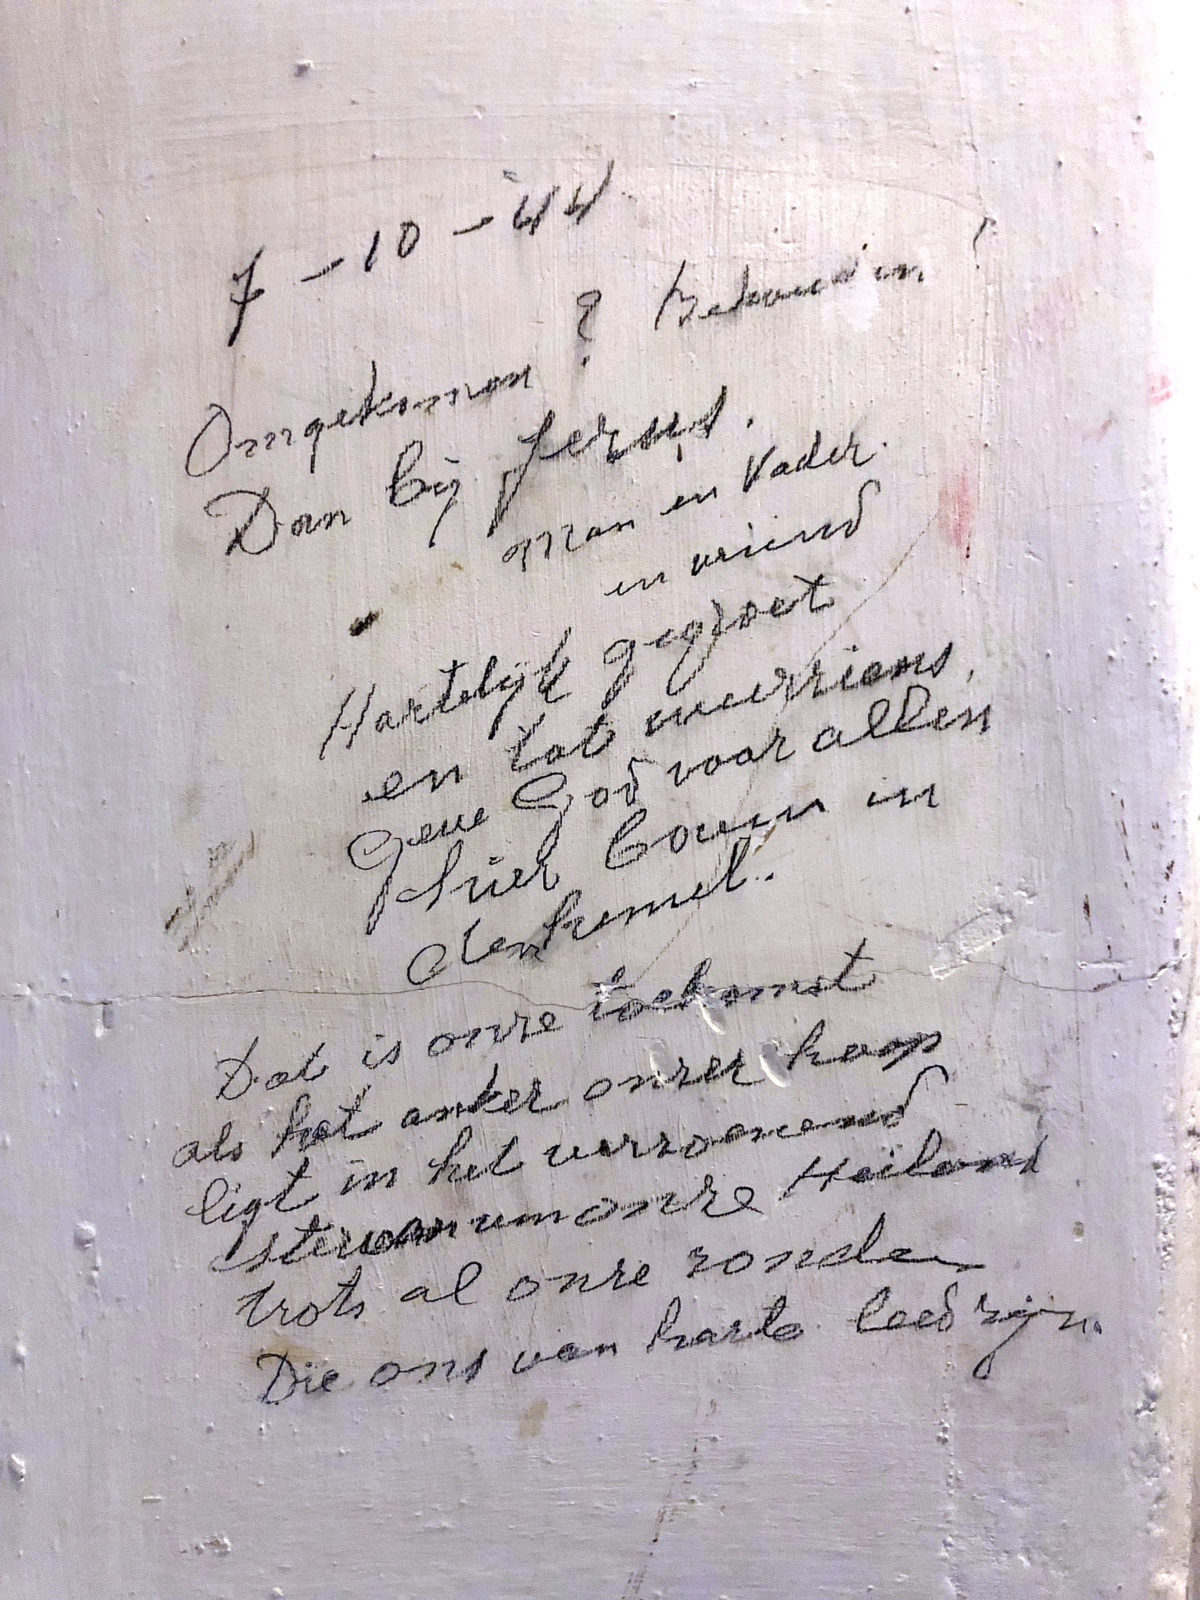 7-10-44
Omgekomen ? Behouden !
Dan bij Jezus.
Man en Vader.
en vriend
Hartelijk gegroet
en tot weerziens,
Geve God voor allen
hier boven in
den hemel.
Dat is onze toekomst
als het anker onzer hoop
ligt in het verzoenend
sterven van onze Heiland
trots al onze zonden
Die ons van harte leed zijn.